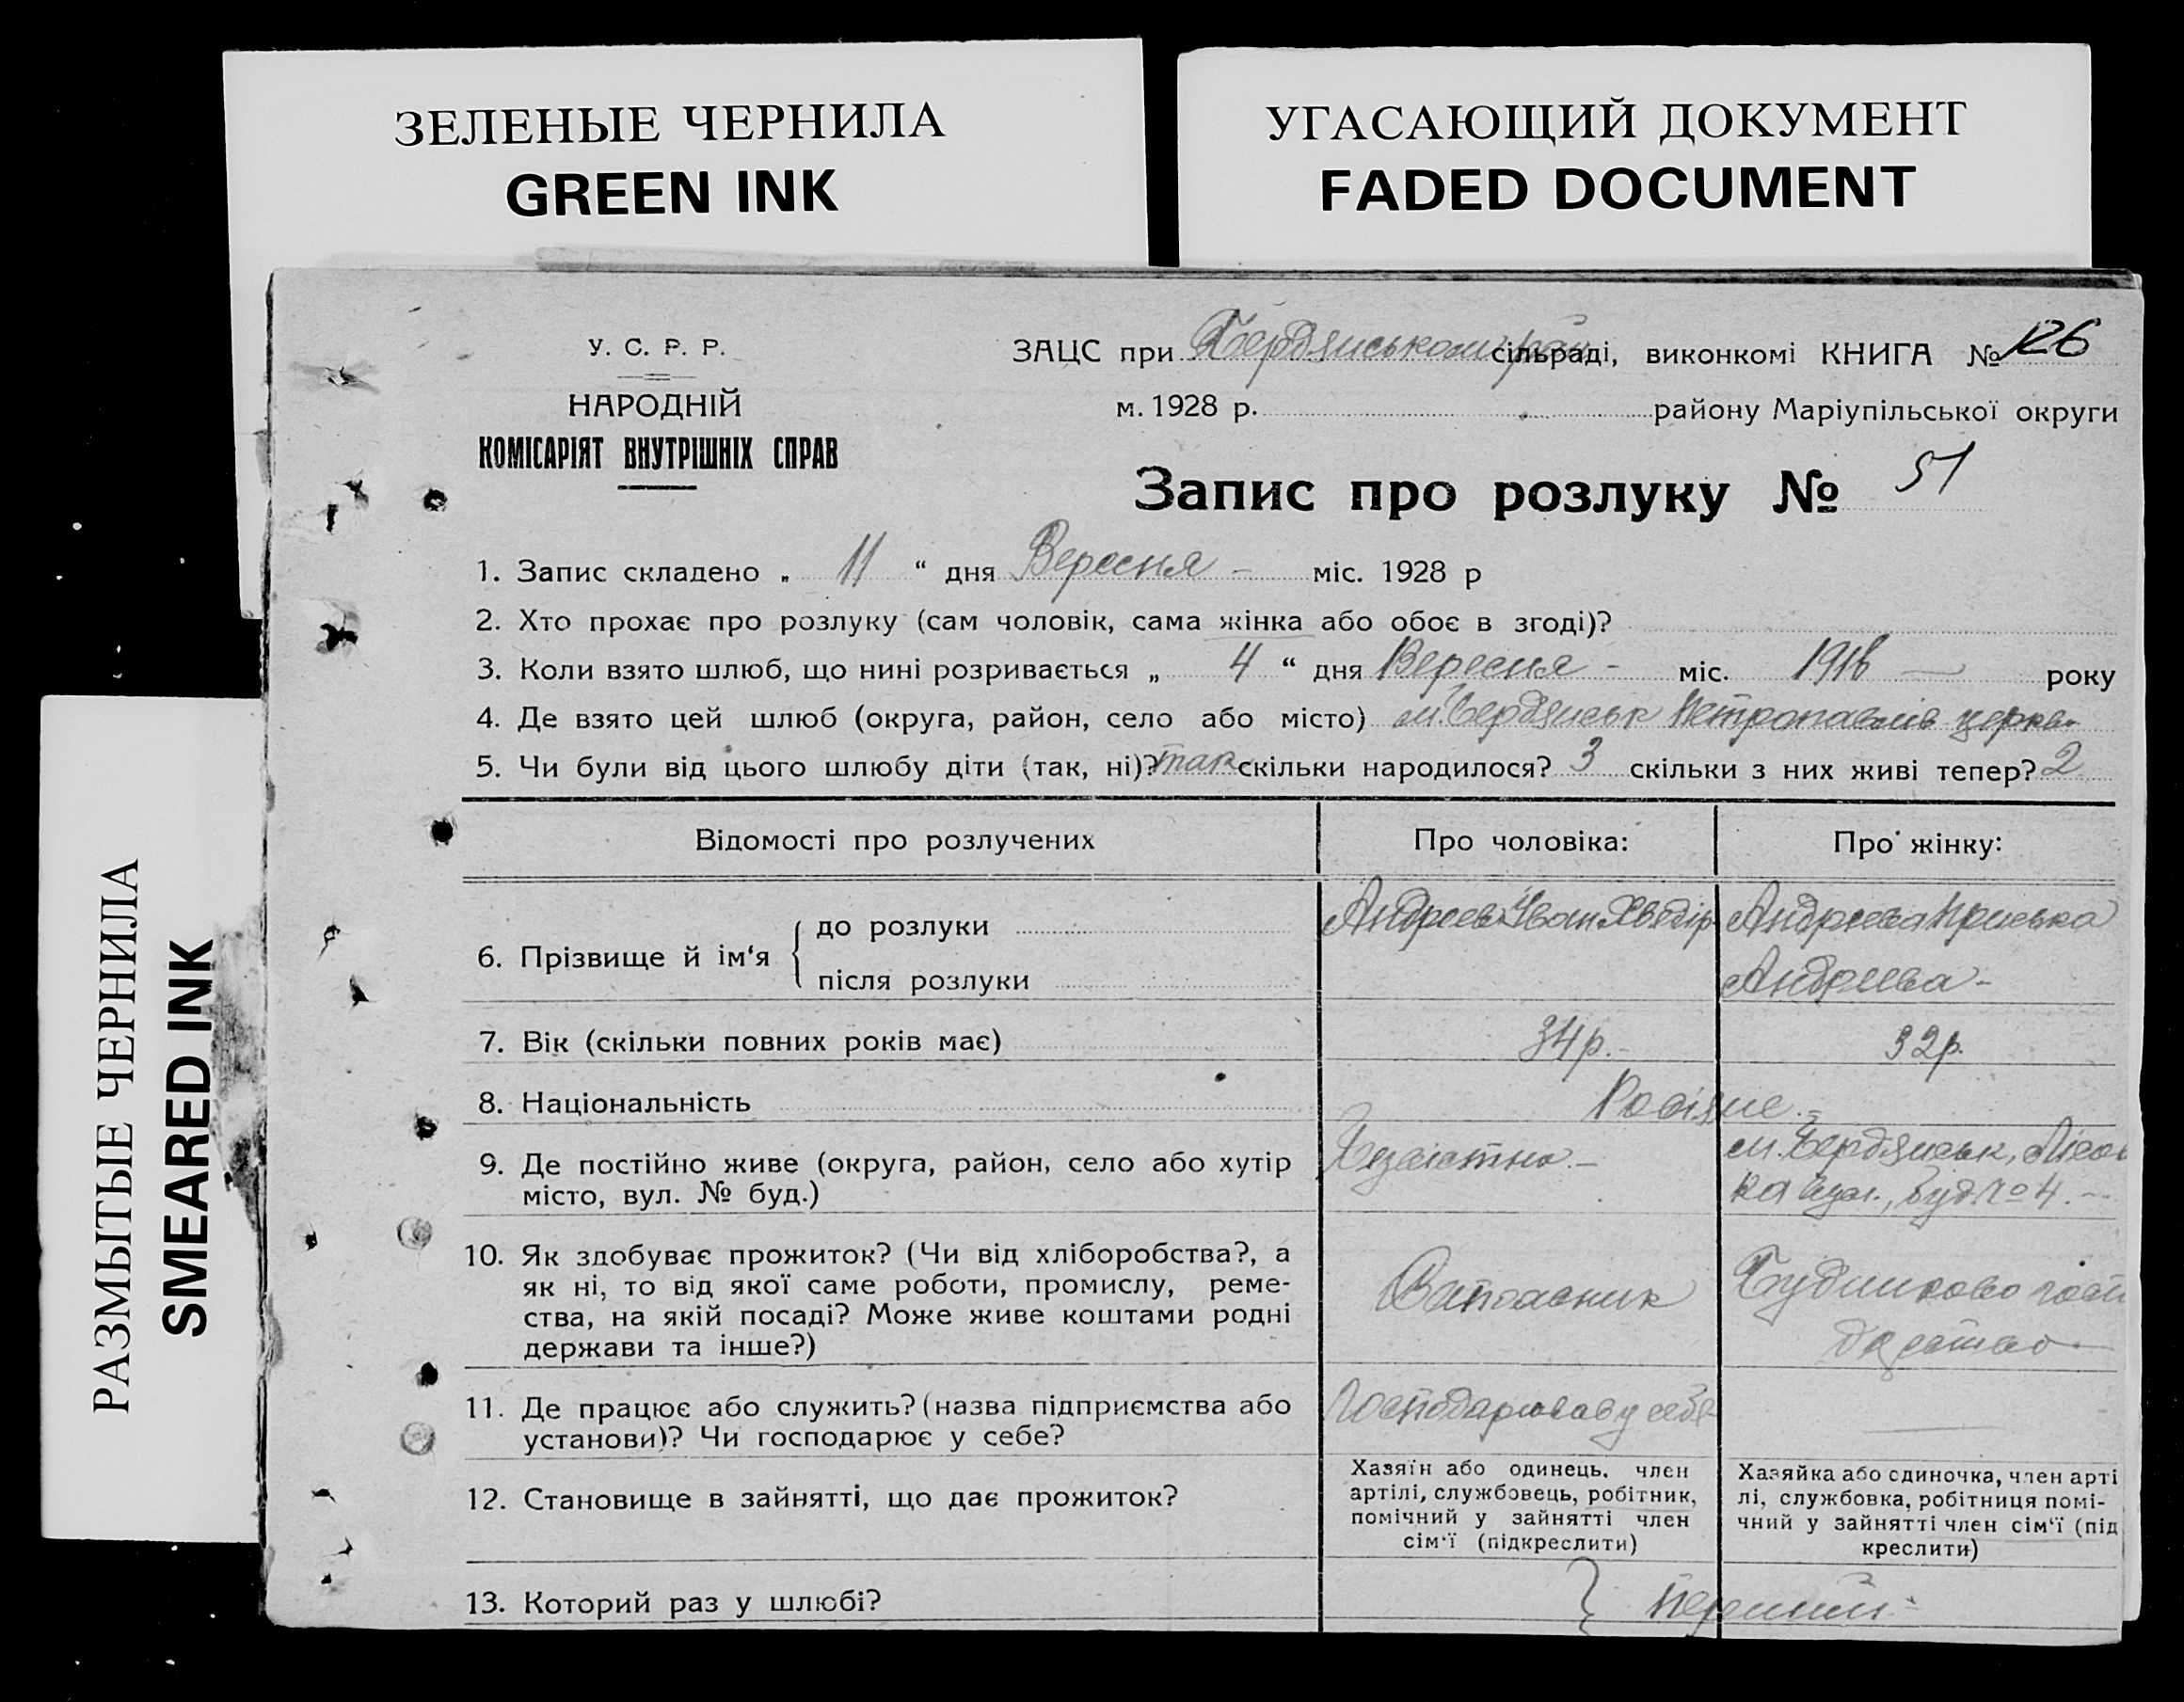 ЗЕЛЕНЫЕ ЧЕРНИЛА
GREEN INK
УГАСАЮЩИЙ ДОКУМЕНТ
FADED DOCUMENT
РАЗМЫТЫЕ ЧЕРНИЛА
SMEARED INK
У. С. Р. Р.
НАРОДНІЙ
КОМІСАРІЯТ ВНУТРІШНІХ СПРАВ
ЗАЦС при Бердянському рай сільраді, виконкомі КНИГА № 126
м. 1928 р. району Маріупільської округи
Запис про розлуку № 51
1. Запис складено „ 11 “ дня Вересня - міс. 1928 р
2. Хто прохає про розлуку (сам чоловік, сама жінка або обоє в згоді)?
3. Коли взято шлюб, що нині розривається „ 4 “ дня Вересня - міс. 1916 — року
4. Де взято цей шлюб (округа, район, село або місто) м. Бердянськ Петропавлів церква
5. Чи були від цього шлюбу діти (так, ні)? так скільки народилося? 3 скільки з них живі тепер? 2
Відомості про розлучених
Про чоловіка:
Про жінку:
6. Прізвище й ім‘я { до розлуки
після розлуки
Андреєв Іван
Андреєва Приська
Андреєва -
7. Вік (скільки повних років має)
34 р. -
32 р.
8. Національність
Росіяне. -
9. Де постійно живе (округа, район, село або хутір
місто, вул. № буд.)
Безвістно. -
м. Бердянськ,
буд. № 4. -
10. Як здобуває прожиток? (Чи від хліборобства?, а
як ні, то від якої саме роботи, промислу, реме-
ства, на якій посаді? Може живе коштами родні
держави та інше?)
11. Де працює або служить? (назва підприємства або
установи)? Чи господарює у себе?
Господарював у себе
—
12. Становище в зайнятті, що дає прожиток?
Хазяїн або одинець, член
артілі, службовець, робітник,
помічний у зайнятті член
сім‘ї (підкреслити)
Хазяйка або єдиночка, член арті
лі, службовка, робітниця помі-
чний у зайнятті член сім‘ї (під
креслити)
13. Которий раз у шлюбі?
} перший -